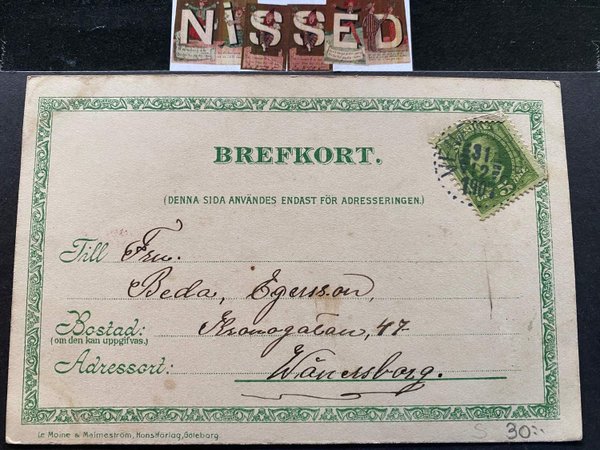 NISSED
BREFKORT.
(DENNA SIDA ANVÄNDES ENDAST FÖR ADRESSERINGEN.)
31
12
190
Till Fru.
Beda, Egersson,
Bostad: Kronogatan, 47
(om den kan uppgifvas.)
Adressort: Wänersborg.
Le Moine & Malmeström, Konstförlag, Göteborg
S 30:-